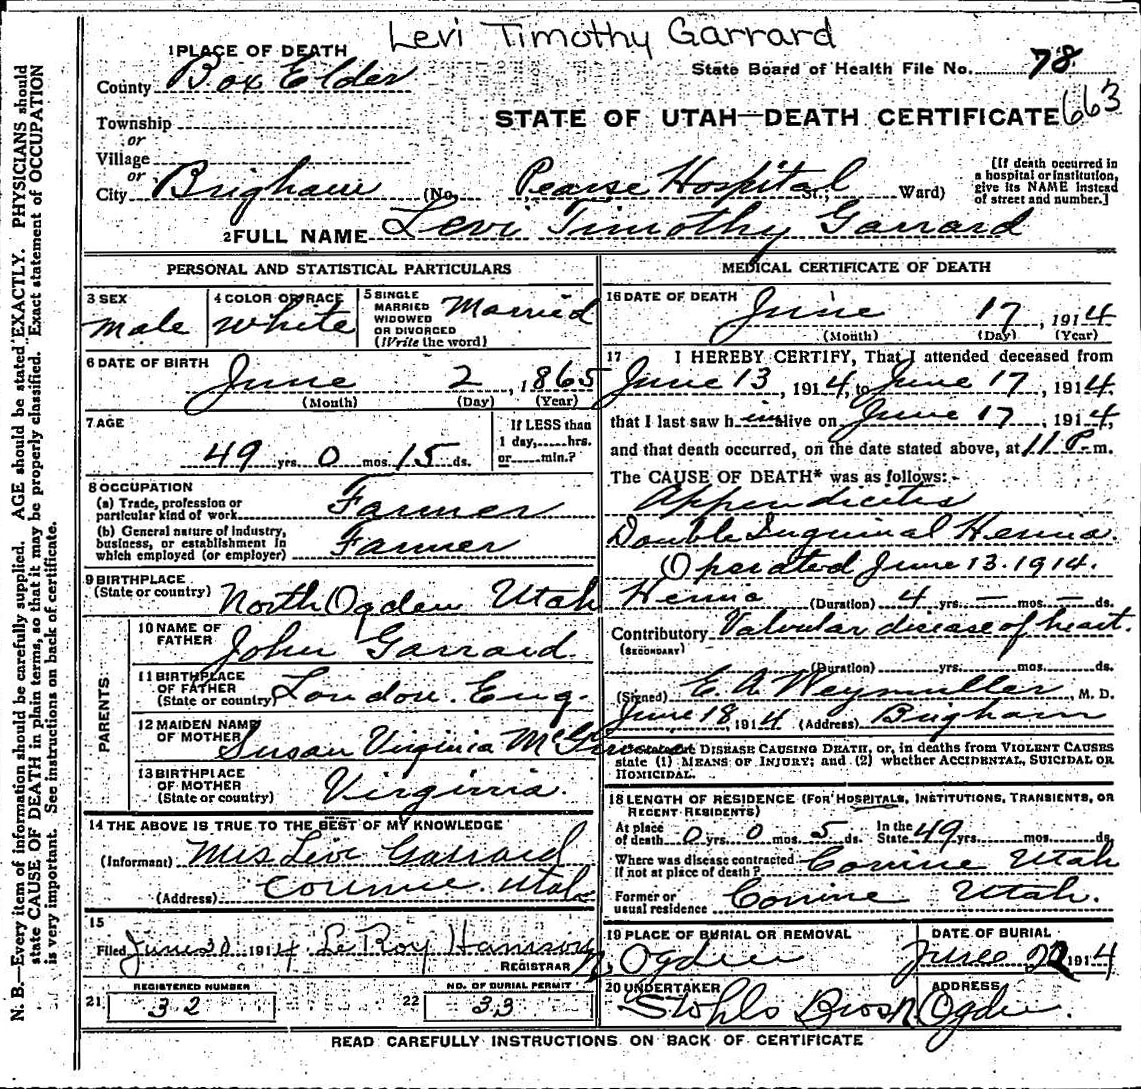 Levi Timothy Garrard
1 PLACE OF DEATH
County Box Elder
State Board of Health File No. 78
663
STATE OF UTAH—DEATH CERTIFICATE
Township
or
Village
or
City Brigham (No. Pearse Hospital St.; Ward)
[If death occurred in a hospital or institution, give its NAME instead of street and number.]
2 FULL NAME Levi Timothy Garrard
PERSONAL AND STATISTICAL PARTICULARS
3 SEX
Male
4 COLOR OR RACE
White
5 SINGLE
MARRIED
WIDOWED
OR DIVORCED
(Write the word)
Married
6 DATE OF BIRTH
June 2, 1865
(Month) (Day) (Year)
7 AGE
49 yrs. 0 mos. 15 ds.
If LESS than
1 day,.....hrs.
or.....min.?
8 OCCUPATION
(a) Trade, profession or
particular kind of work Farmer
(b) General nature of industry,
business, or establishment in
which employed (or employer) Farmer
9 BIRTHPLACE
(State or country) North Ogden Utah
PARENTS
10 NAME OF
FATHER John Garrard
11 BIRTHPLACE
OF FATHER
(State or country) London Eng.
12 MAIDEN NAME
OF MOTHER Susan Virginia
13 BIRTHPLACE
OF MOTHER
(State or country) Virginia.
14 THE ABOVE IS TRUE TO THE BEST OF MY KNOWLEDGE
(Informant) Mrs Levi Garrard
(Address) Corinne. Utah
15
Filed June 20 1914 LeRoy
REGISTRAR
21 REGISTERED NUMBER
32
22 NO. OF BURIAL PERMIT
33
MEDICAL CERTIFICATE OF DEATH
16 DATE OF DEATH June 17, 1914
(Month) (Day) (Year)
17 I HEREBY CERTIFY, That I attended deceased from
June 13, 1914, to June 17, 1914.
that I last saw him alive on June 17, 1914,
and that death occurred, on the date stated above, at 11 P. m.
The CAUSE OF DEATH* was as follows:
Appendicitis
Double Inguinal Hernia.
Operated June 13. 1914.
Hernia (Duration) 4 yrs. — mos. — ds.
Contributory Valvular disease of heart.
(SECONDARY)
(Duration) yrs. mos. ds.
(Signed) E. A. Weymuller, M. D.
June 18, 1914 (Address) Brigham
DISEASE CAUSING DEATH, or, in deaths from VIOLENT CAUSES
state (1) MEANS OF INJURY; and (2) whether ACCIDENTAL, SUICIDAL OR
HOMICIDAL.
18 LENGTH OF RESIDENCE (FOR HOSPITALS, INSTITUTIONS, TRANSIENTS, OR
RECENT RESIDENTS)
At place
of death 0 yrs. 0 mos. 5 ds. In the
State 49 yrs. mos. ds.
Where was disease contracted
if not at place of death? Corrine Utah
Former or
usual residence Corrine Utah.
19 PLACE OF BURIAL OR REMOVAL
N. Ogden
DATE OF BURIAL
June 20 1914
20 UNDERTAKER
Bros
ADDRESS
N Ogden.
READ CAREFULLY INSTRUCTIONS ON BACK OF CERTIFICATE
N. B.—Every item of information should be carefully supplied. AGE should be stated EXACTLY. PHYSICIANS should
state CAUSE OF DEATH in plain terms, so that it may be properly classified. Exact statement of OCCUPATION
is very important. See instructions on back of certificate.